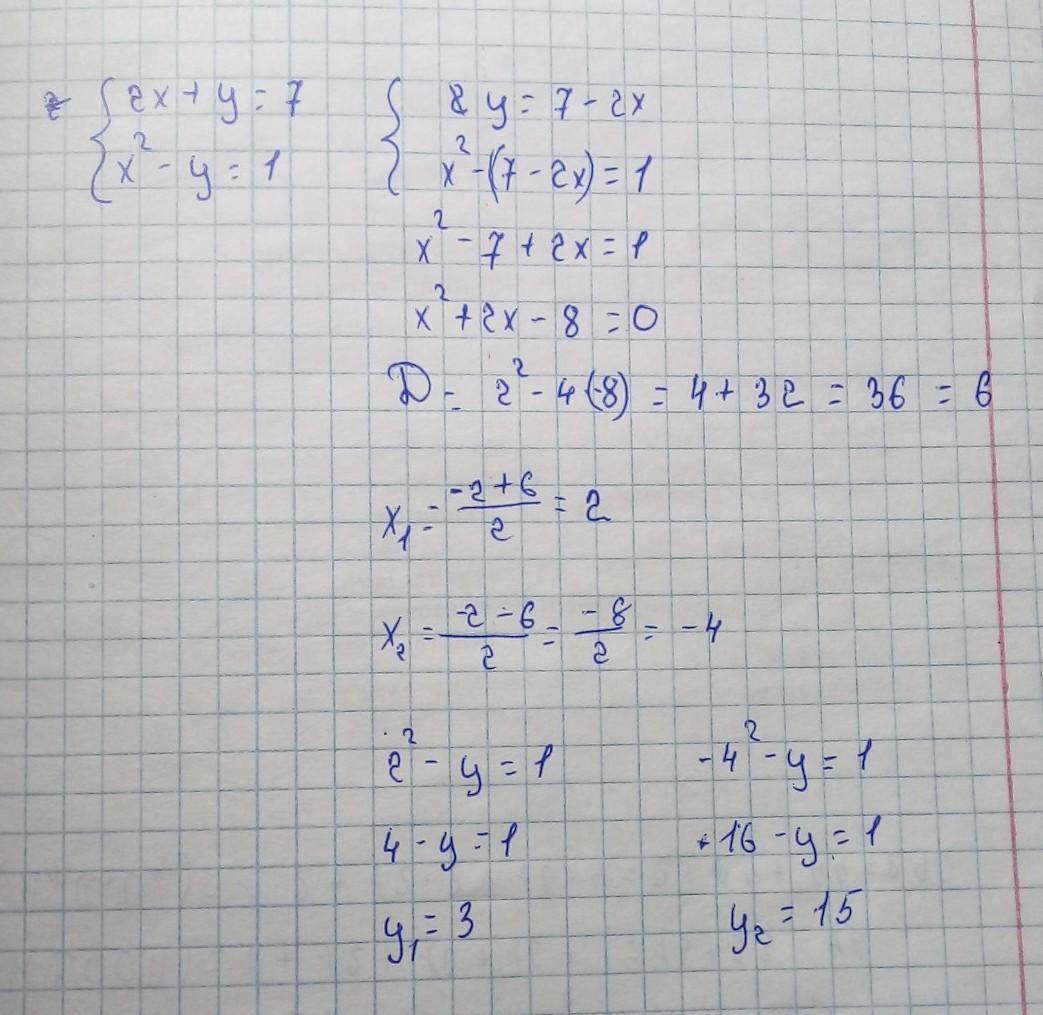 { 2x + y = 7 { y = 7 - 2x
x² - y = 1 x² - (7 - 2x) = 1
x² - 7 + 2x = 1
x² + 2x - 8 = 0
D = 2² - 4(-8) = 4 + 32 = 36 = 6
x₁ = (-2 + 6)/2 = 2
x₂ = (-2 - 6)/2 = -8/2 = -4
2² - y = 1 -4² - y = 1
4 - y = 1 +16 - y = 1
y₁ = 3 y₂ = 15